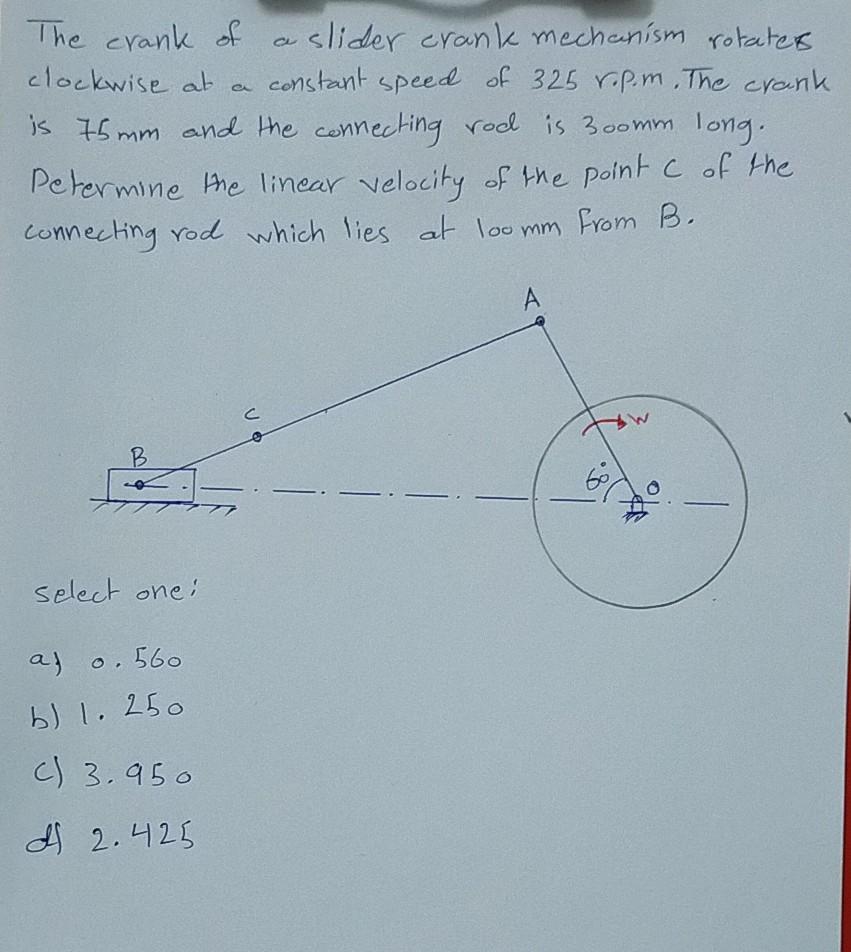 The crank of a slider crank mechanism rotates
clockwise at a constant speed of 325 r.p.m. The crank
is 75mm and the connecting rod is 300mm long.
Determine the linear velocity of the point C of the
connecting rod which lies at 100mm from B.
A
C
W
B
60°
O
select one:
a) 0.560
b) 1.250
c) 3.950
d) 2.425